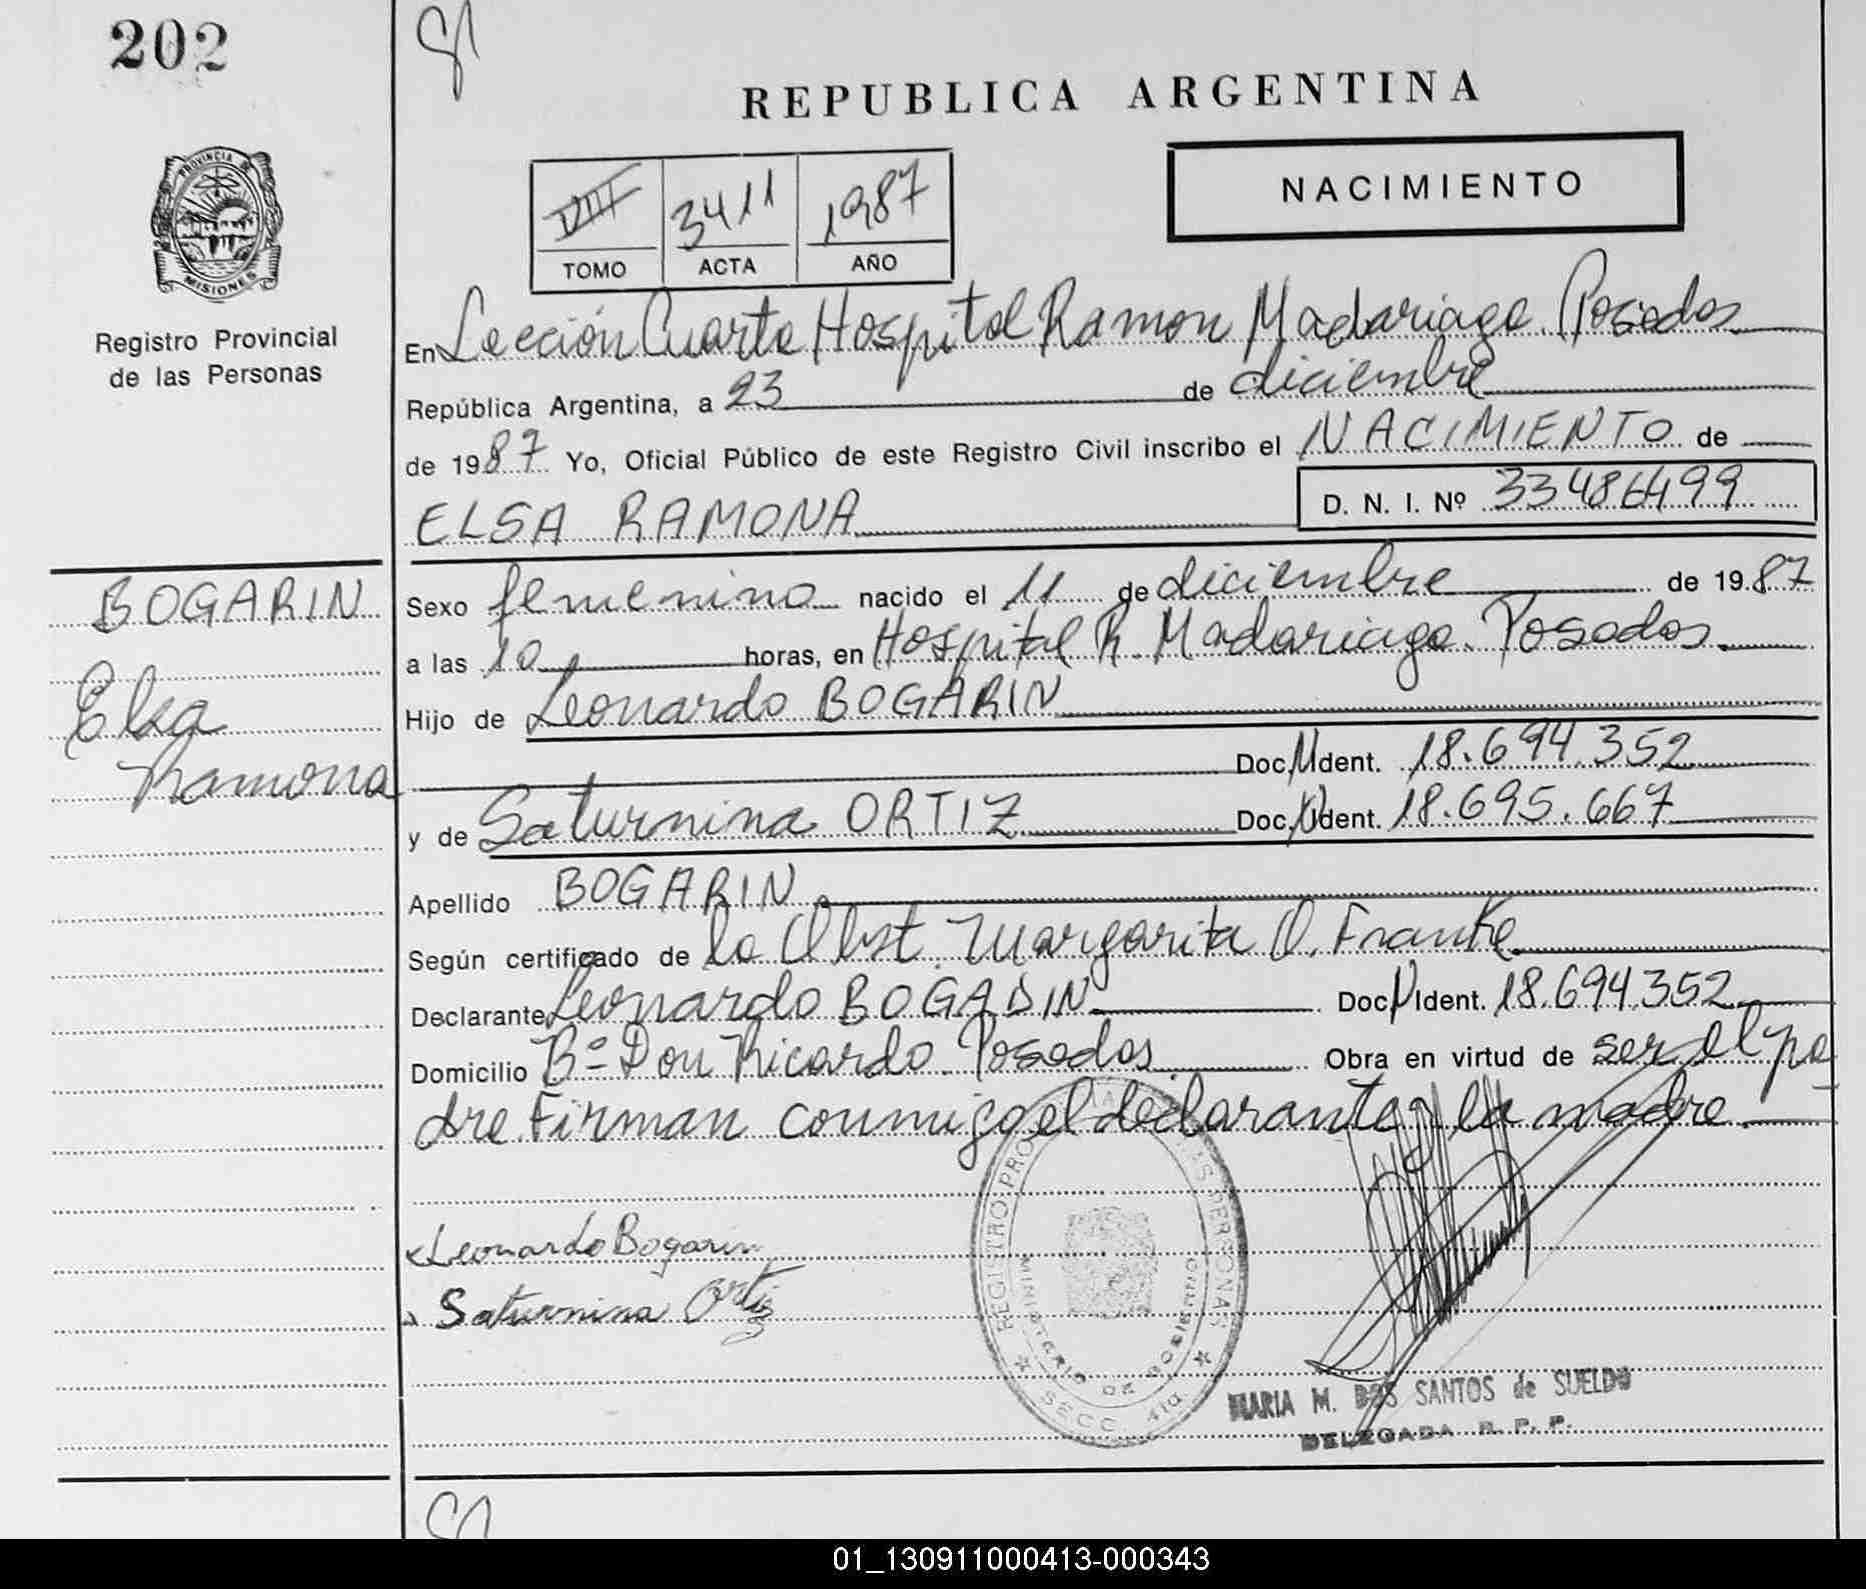 202
REPUBLICA ARGENTINA
PROVINCIA DE
MISIONES
Registro Provincial
de las Personas
VIII 3411 1987
TOMO ACTA AÑO
NACIMIENTO
En Sección Cuarta Hospital Ramon Madariaga. Posadas
República Argentina, a 23 de diciembre
de 1987 Yo, Oficial Público de este Registro Civil inscribo el NACIMIENTO de
ELSA RAMONA D. N. I. Nº 33486499
BOGARIN
Elsa
Ramona
Sexo femenino nacido el 11 de diciembre de 1987
a las 10 horas, en Hospital R. Madariaga. Posadas.
Hijo de Leonardo BOGARIN
Doc. Ident. 18.694.352
y de Saturnina ORTIZ Doc. Ident. 18.695.667
Apellido BOGARIN
Según certificado de la Obst. Margarita O. Franke
Declarante Leonardo BOGARIN Doc. Ident. 18.694.352
Domicilio Bº Don Ricardo. Posadas Obra en virtud de ser el pa
dre. Firman conmigo el declarante y la madre.
Leonardo Bogarin
Saturnina Ortiz
REGISTRO PROVINCIAL DE LAS PERSONAS
MINISTERIO DE GOBIERNO
SECC. 4ta
MARIA M. DOS SANTOS de SUELDO
DELEGADA R. P. P.
01_130911000413-000343